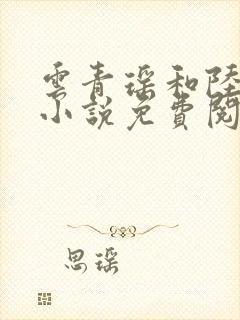 雲青瑶和陸
小說免費閱
思瑶